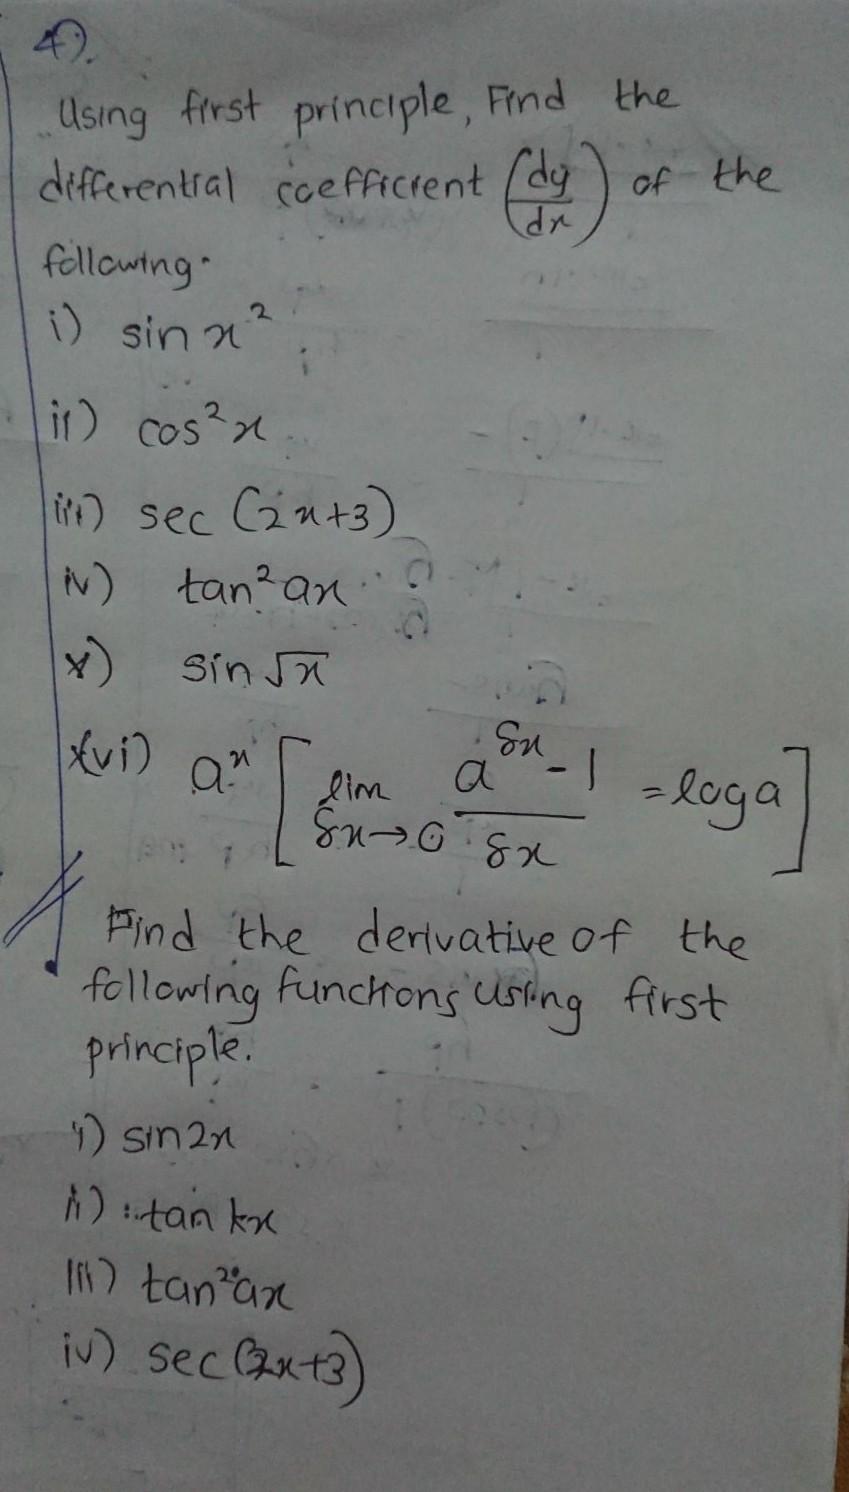 4).
Using first principle, Find the
differential coefficient (dy/dx) of the
following.
i) sin x²
ii) cos²x
iii) sec (2x+3)
iv) tan² ax
v) sin √x
vi) aˣ [lim δx→0 (a^δx - 1)/δx = log a]
Find the derivative of the
following functions using first
principle.
i) sin2x
ii) tan kx
iii) tan²ax
iv) sec(2x+3)